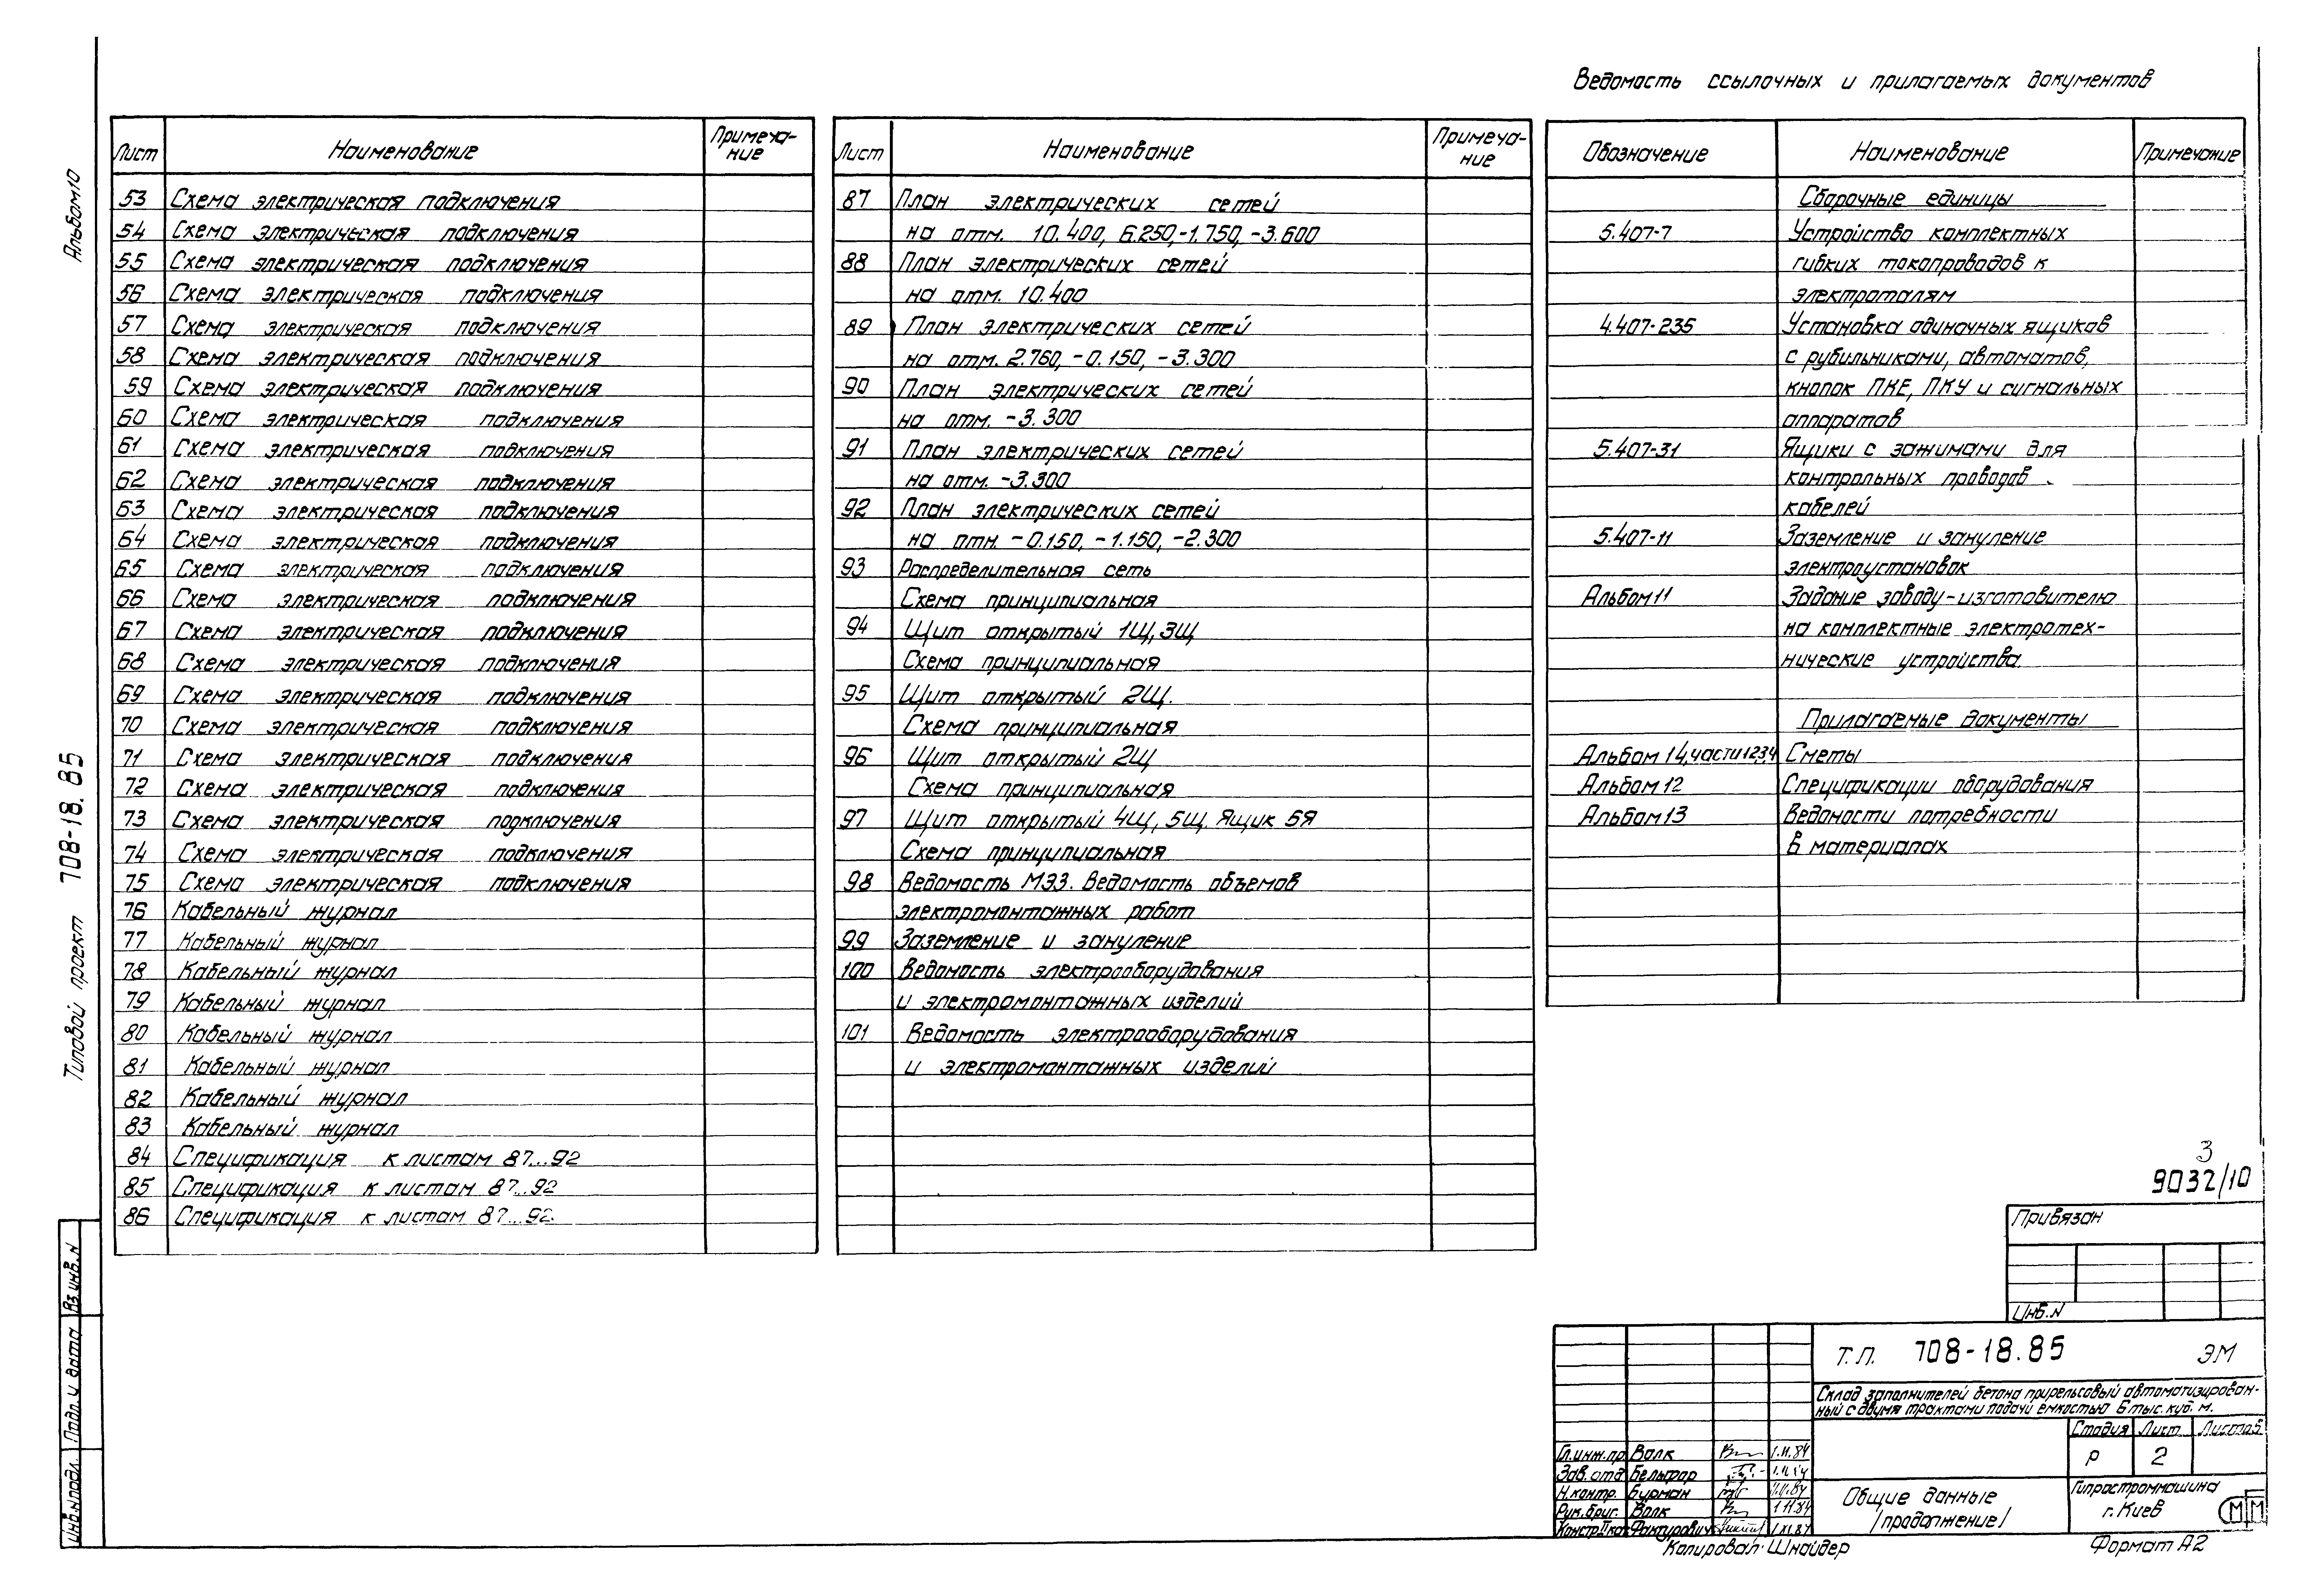 Ведомость ссылочных и прилагаемых документов
Альбом 10
Типовой проект 708-18.85
Лист Наименование Примеча-ние
53 Схема электрическая подключения
54 Схема электрическая подключения
55 Схема электрическая подключения
56 Схема электрическая подключения
57 Схема электрическая подключения
58 Схема электрическая подключения
59 Схема электрическая подключения
60 Схема электрическая подключения
61 Схема электрическая подключения
62 Схема электрическая подключения
63 Схема электрическая подключения
64 Схема электрическая подключения
65 Схема электрическая подключения
66 Схема электрическая подключения
67 Схема электрическая подключения
68 Схема электрическая подключения
69 Схема электрическая подключения
70 Схема электрическая подключения
71 Схема электрическая подключения
72 Схема электрическая подключения
73 Схема электрическая подключения
74 Схема электрическая подключения
75 Схема электрическая подключения
76 Кабельный журнал
77 Кабельный журнал
78 Кабельный журнал
79 Кабельный журнал
80 Кабельный журнал
81 Кабельный журнал
82 Кабельный журнал
83 Кабельный журнал
84 Спецификация к листам 87...92
85 Спецификация к листам 87...92
86 Спецификация к листам 87...92.
Лист Наименование Примеча-ние
87 План электрических сетей
на отм. 10.400, 6.250, -1.750, -3.600
88 План электрических сетей
на отм. 10.400
89 План электрических сетей
на отм. 2.760, -0.150, -3.300
90 План электрических сетей
на отм. -3.300
91 План электрических сетей
на отм. -3.300
92 План электрических сетей
на отм. -0.150, -1.150, -2.300
93 Распределительная сеть
Схема принципиальная
94 Щит открытый 1Щ, 3Щ
Схема принципиальная
95 Щит открытый 2Щ.
Схема принципиальная
96 Щит открытый 2Щ
Схема принципиальная
97 Щит открытый 4Щ, 5Щ. Ящик 6Я
Схема принципиальная
98 Ведомость МЭЗ. Ведомость объемов
электромонтажных работ
99 Заземление и зануление
100 Ведомость электрооборудования
и электромонтажных изделий
101 Ведомость электрооборудования
и электромонтажных изделий
Обозначение Наименование Примечание
Сборочные единицы
5.407-7 Устройство комплектных
гибких токопроводов к
электроталям
4.407-235 Установка одиночных ящиков
с рубильниками, автоматов,
кнопок ПКЕ, ПКУ и сигнальных
аппаратов
5.407-31 Ящики с зажимами для
контрольных проводов
кабелей
5.407-11 Заземление и зануление
электроустановок
Альбом 11 Задание заводу-изготовителю
на комплектные электротех-
нические устройства.
Прилагаемые документы
Альбом 14, части 1,2,3,4 Сметы
Альбом 12 Спецификации оборудования
Альбом 13 Ведомости потребности
в материалах
3
9032/10
Привязан
Инв.N
Т.П. 708-18.85 ЭМ
Склад заполнителей бетона прирельсовый автоматизирован-
ный с двумя трактами подачи емкостью 6 тыс. куб. м.
Стадия Лист Листов
Р 2
Гл.инж.пр. Волк 1.11.84
Зав.отд. Бельфор 1.11.84
Н.контр. Бурман 1.11.84
Рук.бриг. Волк 1.11.84
Констр.II кат. Фактурович 1.XI.84
Общие данные
/продолжение/
Гипростроммашина
г. Киев
ММ
Копировал: Шнайдер
Формат А2
Вз.инв.N
Подп. и дата
Инв.N подл.